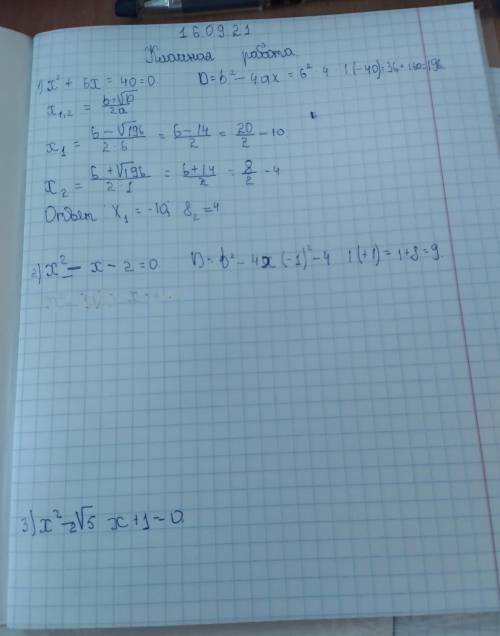 16.09.21
Классная работа
1) x² + 6x = 40 = 0 D = b² - 4ax = 6² 4 1(-40) = 36 + 160 = 196
x₁,₂ = b+√D / 2a
x₁ = 6 - √196 / 2·6 = 6 - 14 / 2 = 20 / 2 - 10
x₂ = 6 + √196 / 2·1 = 6 + 14 / 2 = 8 / 2 - 4
Ответ x₁ = -10 8₂ = 4
2) x² - x - 2 = 0 D = b² - 4x (-1)² - 4 1(+1) = 1 + 8 = 9
3) x² - 2√5 x + 1 = 0